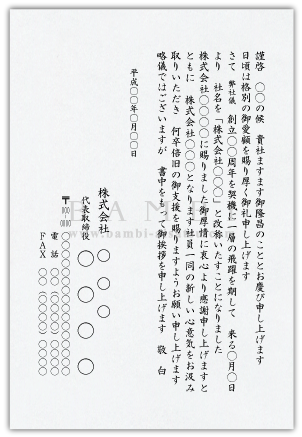 謹啓　〇〇の候　貴社ますます御隆昌のこととお慶び申し上げます
日頃は格別の御愛顧を賜り厚く御礼申し上げます
さて　弊社儀　創立〇〇周年を契機に一層の飛躍を期して　来る〇月〇日
より　社名を「株式会社〇〇〇」と改称いたすことになりました
株式会社〇〇〇〇に賜りました御厚情に衷心より感謝申し上げますと
ともに　株式会社〇〇〇となります社員一同の新しい心意気をお汲み
取りいただき　何卒倍旧の御支援を賜りますようお願い申し上げます
略儀ではございますが　書中をもって御挨拶を申し上げます　敬　白
平成〇〇年〇月〇〇日
株式会社　〇　〇　〇
代表取締役　〇　〇　〇　〇
〒000-0000　〇〇〇〇〇〇〇〇〇〇〇〇
電　話　〇〇〇（〇〇〇）〇〇〇〇
ＦＡＸ　〇〇〇（〇〇〇）〇〇〇〇